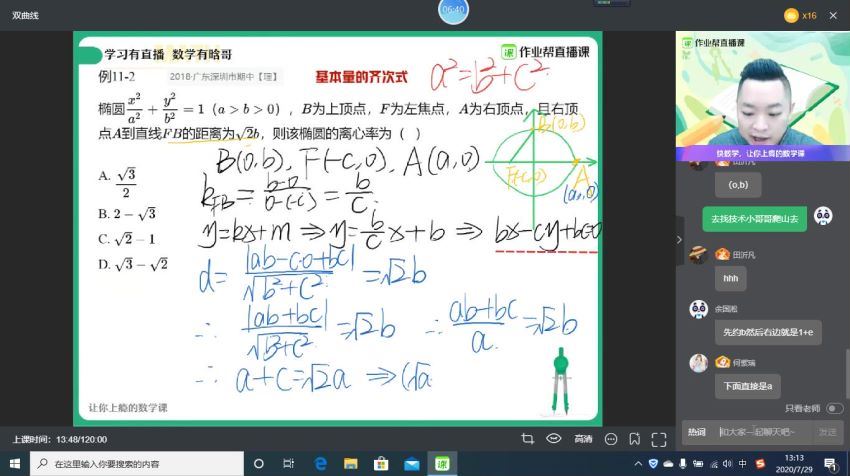 双曲线
06:40
×16
学习有直播 数学有晗哥
作业帮直播课
例11-2
2018·广东深圳市期中【理】
基本量的齐次式
a²=b²+c²
椭圆x²/a²+y²/b²=1（a>b>0），B为上顶点，F为左焦点，A为右顶点，且右顶
点A到直线FB的距离为√2b，则该椭圆的离心率为（ ）
A. √3/2
B. 2-√3
C. √2-1
D. √3-√2
B(0,b), F(-c,0), A(a,0)
k_FB = (b-0)/(0-(-c)) = b/c
y=kx+m ⇒ y=b/c x+b ⇒ bx-cy+bc=0
d=|ab-c·0+bc|/√(b²+c²) =√2b
∴ |ab+bc|/√(b²+c²) =√2b ∴ (ab+bc)/a =√2b
∴ a+c=√2a ⇒ (√a
B(0,b)
F(-c,0)
A
(a,0)
让你上瘾的数学课
作业帮直播课
快数学，让你上瘾的数学课
(o,b)
去找技术小哥哥爬山去
田沂凡
hhh
余国凇
先约b然后右边就是1+e
何紫瑞
下面直接是a
只看老师
热词
和大家一起聊天吧~
发送
上课时间：13:48/120:00
高清
在这里输入你要搜索的内容
中
13:13
2020/7/29